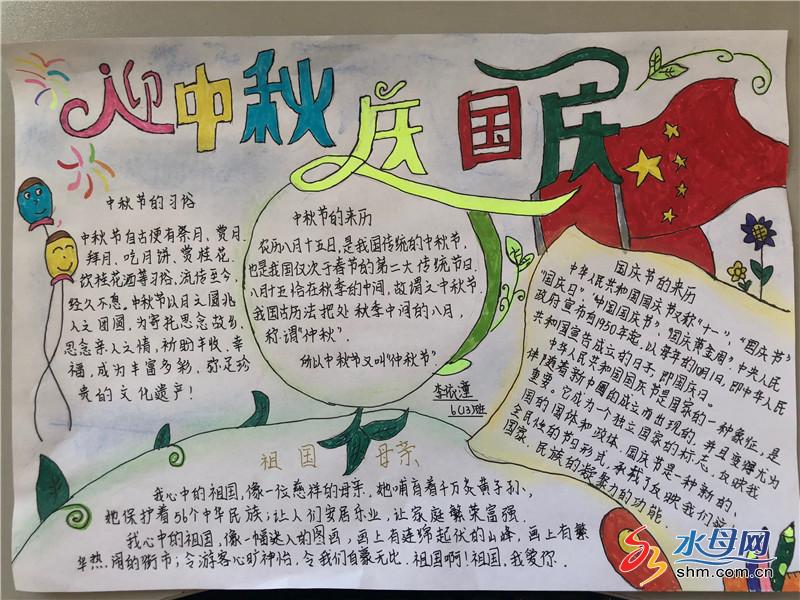 迎中秋 庆国庆
中秋节的习俗
中秋节自古便有祭月、赏月、
拜月、吃月饼、赏桂花、
饮桂花酒等习俗,流传至今,
经久不息。中秋节以月之圆兆
人之团圆,为寄托思念故乡,
思念亲人之情,祈盼丰收、幸
福,成为丰富多彩、弥足珍
贵的文化遗产!
中秋节的来历
农历八月十五日,是我国传统的中秋节,
也是我国仅次于春节的第二大传统节日.
八月十五恰在秋季的中间,故谓之中秋节.
我国古历法把处秋季中间的八月,
称谓“仲秋”.
所以中秋节又叫“仲秋节”
李依潼
6(13)班
国庆节的来历
中华人民共和国国庆节又称“十一”、“国庆节”、
“国庆日”、“中国国庆节”、“国庆黄金周”,中央人民
政府宣布自1950年起,以每年的10月1日,即中华人民
共和国宣告成立的日子,即国庆日。
中华人民共和国国庆节是国家的一种象征,是
伴随着新中国的成立而出现的,并且变得尤为
重要。它成为一个独立国家的标志,反映我
国的国体和政体.国庆节是一种新的、
全民性的节日形式,承载了反映我们这
国家、民族的凝聚力的功能.
祖国 母亲
我心中的祖国,像一位慈祥的母亲.她哺育着千万炎黄子孙,
她保护着56个中华民族;让人们安居乐业,让家庭繁荣富强.
我心中的祖国,像一幅迷人的图画,画上有连绵起伏的山峰,画上有繁
华热闹的街市;令游客心旷神怡,令我们自豪无比.祖国啊!祖国,我爱你.
水母网
shm.com.cn